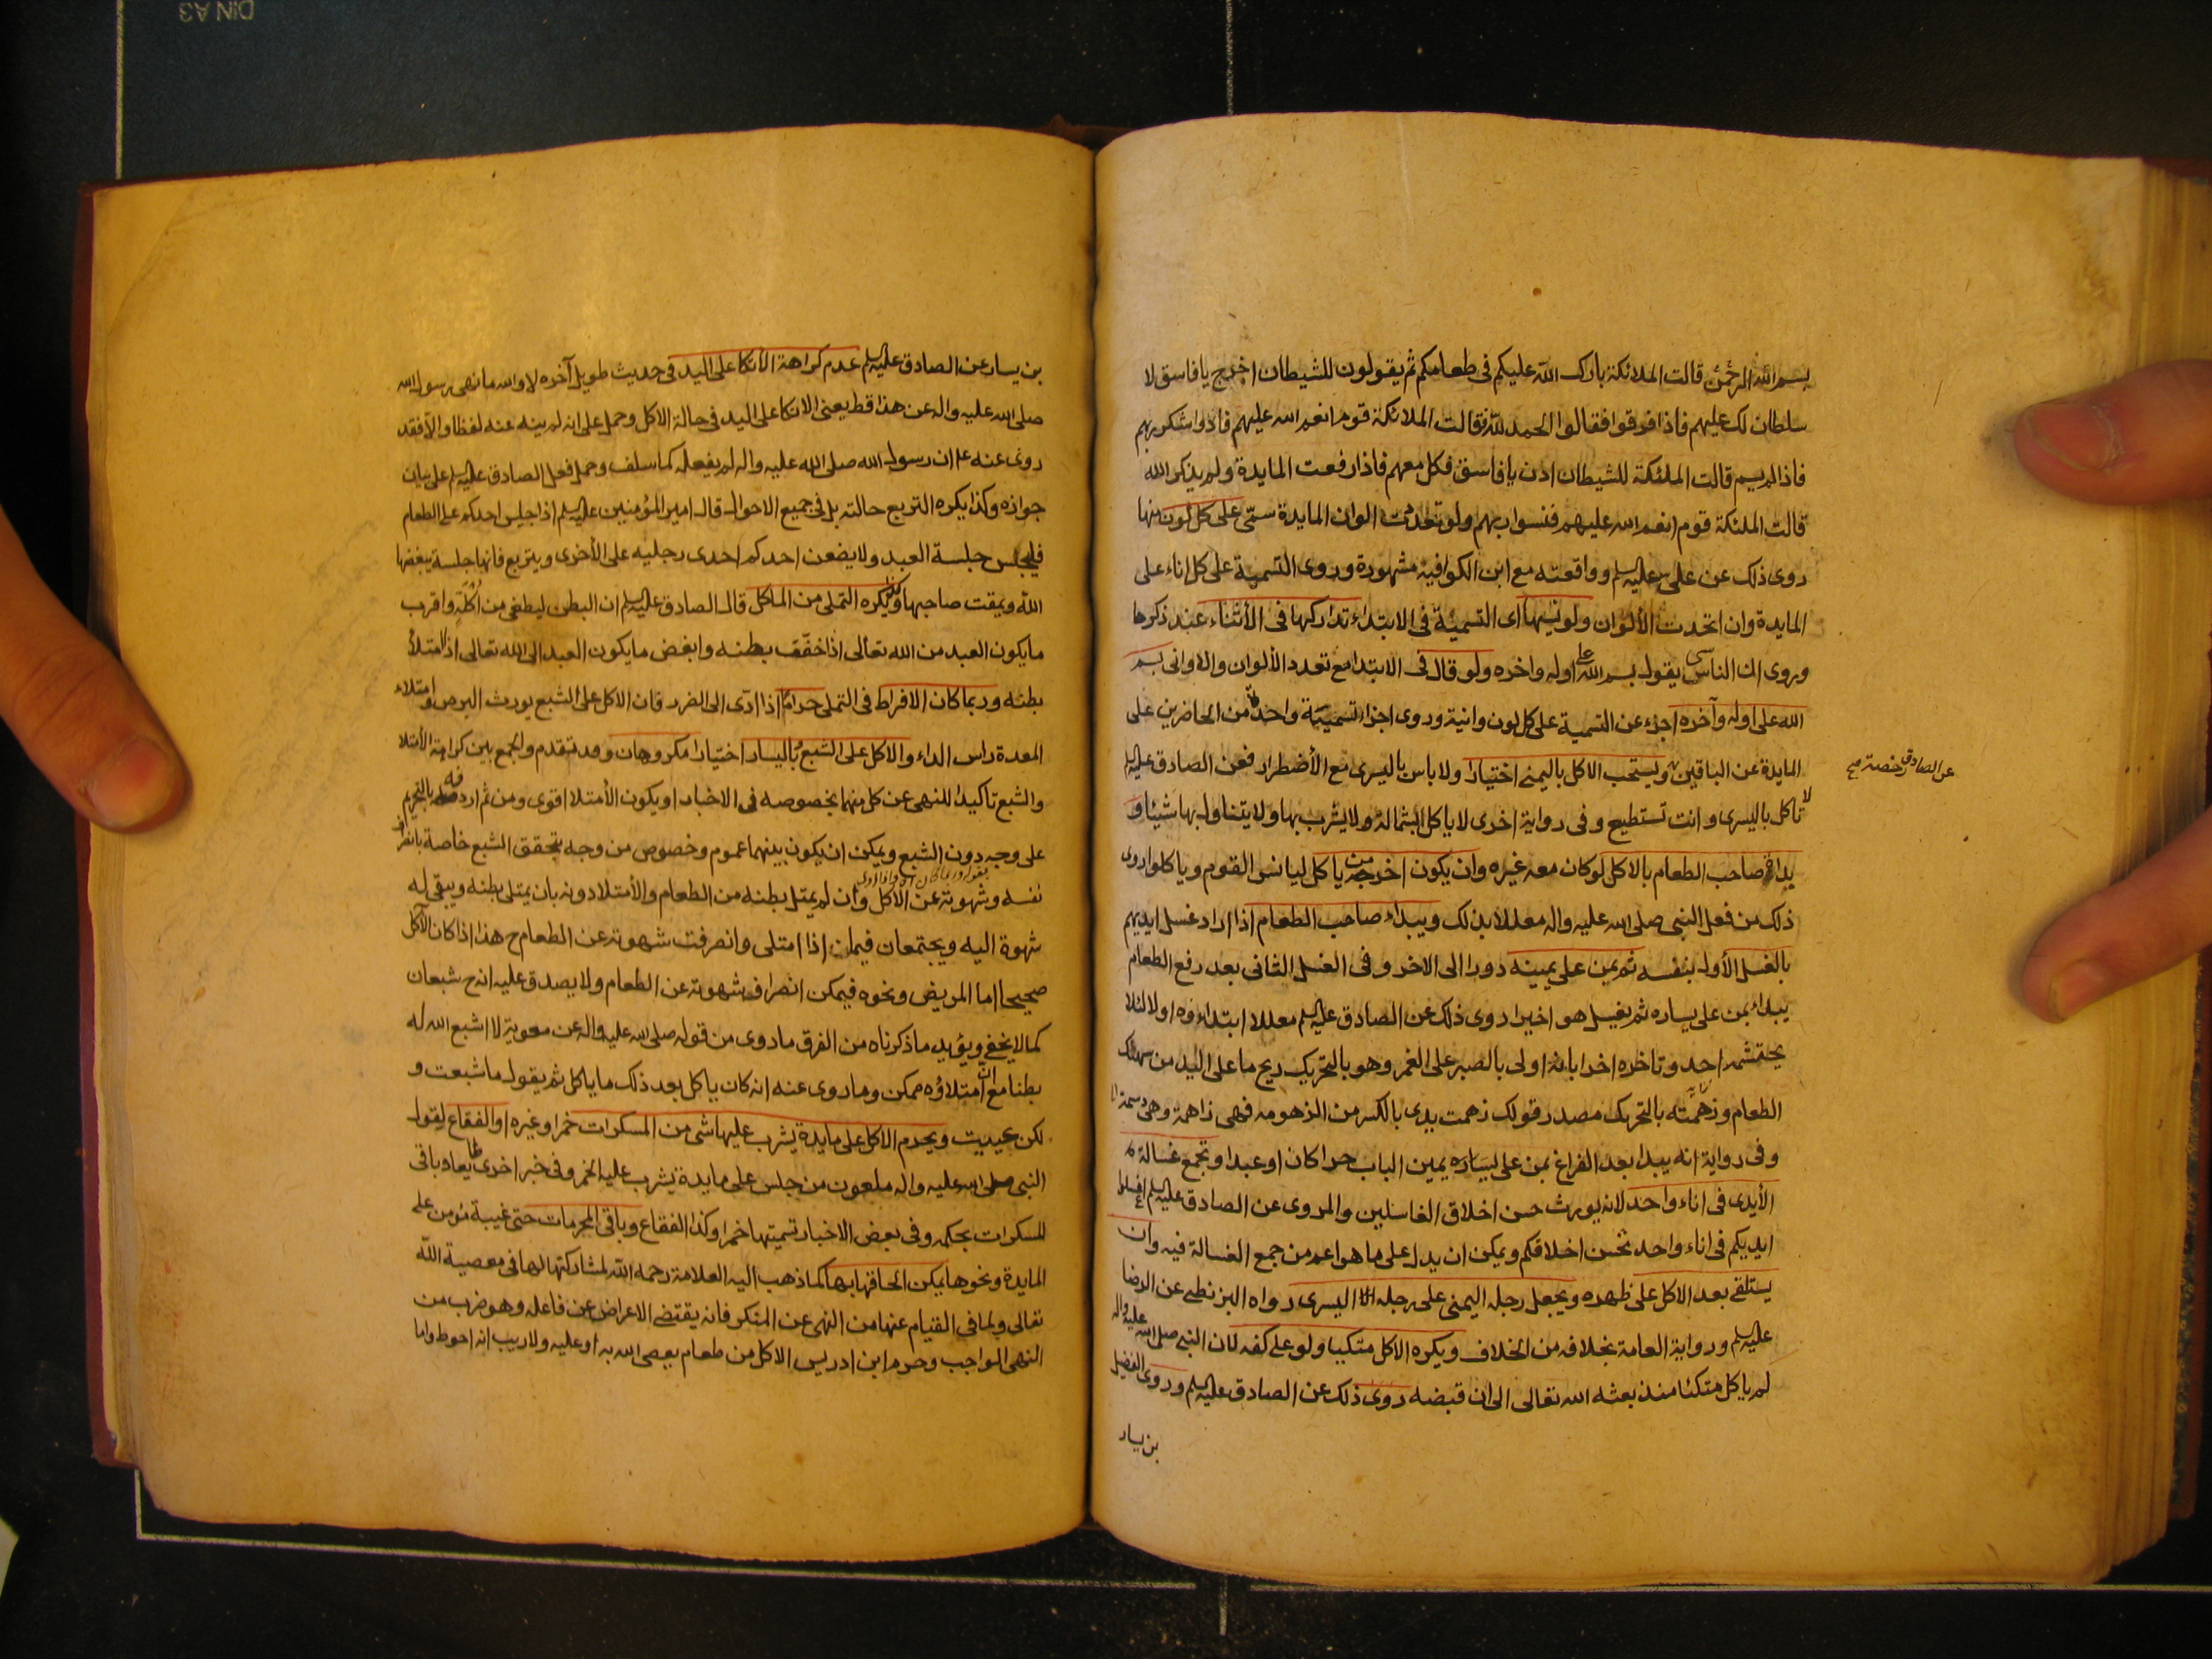 بسم الله الرحمن قالت الملائكة بارك الله عليكم في طعامكم ثم يقولون للشيطان اخرج يا فاسق لا
سلطان لك عليهم فاذا فرقوا فقالوا الحمد لله قالت الملائكة قوم انعم الله عليهم فادوا شكر ربهم
فاذا لم يسم قالت الملئكة للشيطان ادن يا فاسق فكل معهم فاذا رفعت المايدة ولم يذكر الله
قالت الملئكة قوم انعم الله عليهم فنسوا ربهم ولو تعددت الوان المايدة سمى على كل لون منها
روى ذلك عن علي عليه السلم وواقعته مع ابن الكوا فيه مشهورة وروى التسمية على كل اناء على
المايدة وان اتحدت الألوان ولو نسيها اى التسمية فى الابتداء تداركها فى الأثناء عند ذكرها
وروى ان الناسى يقول بسم الله على اوله واخره ولو قال فى الابتدا مع تعدد الألوان والاوانى بسم
الله على اوله وآخره اجزء عن التسمية على كل لون وانية وروى اجزاء تسمية واحد من الحاضرين على
المايدة عن الباقين ويستحب الاكل باليمنى اختيارا ولا باس باليسرى مع الأضطرار فعن الصادق عليه السلم
عن الصادق رخصة صح
لا تاكل باليسرى وانت تستطيع وفى رواية اخرى لا ياكل بشماله ولا يشرب بها ولا يتناول بها شيئا و
بداة صاحب الطعام بالاكل لو كان معه غيره وان يكون اخر من ياكل ليانس القوم وياكلوا روى
ذلك من فعل النبى صلى الله عليه واله معللا بذلك ويبداء صاحب الطعام اذا اراد غسل ايديهم
بالغسل الأول بنفسه ثم بمن على يمينه دورا الى الاخر وفى الغسل الثانى بعد رفع الطعام
يبداء بمن على يساره ثم يغسل هو اخيرا روى ذلك عن الصادق عليه السلم معللا ابتداءه اولا لئلا
يحتشمه احد وتاخره اخرا بانه اولى بالصبر على الغمر وهو بالتحريك ريح ما على اليد من سهك
الطعام وزهمته بالتحريك مصدر قولك زهمت يدى بالكسر من الزهومه فهى زاهمة وهى دسمة
وفى رواية انه يبدا بعد الفراغ بمن على يساره يمين الباب حرا كان او عبدا وتجمع غسالة
الأيدى فى اناء واحد لانه يورث حسن اخلاق الغاسلين والمروى عن الصادق عليه السلم اغسلوا
ايديكم فى اناء واحد تحسن اخلاقكم ويمكن ان يدل على ما هو اعم من جمع الغسالة فيه وان
يستلقى بعد الاكل على ظهره ويجعل رجله اليمنى على رجله اليسرى رواه البزنطى عن الرضا
عليه السلم ورواية العامة بخلافه من الخلاف ويكره الاكل متكيا ولو على كفه لان النبى صلى الله عليه واله
لم ياكل متكئا منذ بعثه الله تعالى الى ان قبضه روى ذلك عن الصادق عليه السلم وروى الفضيل
بن يسار
بن يسار عن الصادق عليه السلم عدم كراهة الاتكا على اليد فى حديث طويل آخره لا والله ما نهى رسول الله
صلى الله عليه واله عن هذا قط يعنى الاتكا على اليد فى حالة الاكل وحمل على انه لم ينه عنه لفظا والا فقد
روى عنه ان رسول الله صلى الله عليه واله لم يفعله كما سلف وحمل فعل الصادق عليه السلم على بيان
جوازه وكذا يكره التربع حالته بل فى جميع الاحوال قال امير المؤمنين عليه السلم اذا جلس احدكم على الطعام
فليجلس جلسة العبد ولا يضعن احدكم احدى رجليه على الأخرى ويتربع فانها جلسة يبغضها
الله ويمقت صاحبها ويكره التملى من الماكل قال الصادق عليه السلم ان البطن ليطغى من اكلة واقرب
ما يكون العبد من الله تعالى اذا خفف بطنه وابغض ما يكون العبد الى الله تعالى اذا امتلأ
بطنه وربما كان الافراط فى التملى حراما اذا ادى الى الضرر فان الاكل على الشبع يورث البرص وامتلاء
المعدة راس الداء والاكل على الشبع وباليسار اختيارا مكروهان وقد تقدم والجمع بين كراهة الأمتلا
والشبع تاكيدا للنهى عن كل منهما بخصوصه فى الاخبار او يكون الأمتلا اقوى ومن ثم اردفه بالتحريم
على وجه دون الشبع ويمكن ان يكون بينهما عموم وخصوص من وجه بتحقق الشبع خاصة بانصراف
بقوله وربما كان اه واذا ادى
نفسه وشهوته عن الاكل وان لم يمتل بطنه من الطعام والأمتلا دونه بان يمتلى بطنه ويبقى له
شهوة اليه ويجتمعان فيمان اذا امتلى وانصرفت شهوته عن الطعام ح هذا اذا كان الآكل
صحيحا اما المريض ونحوه فيمكن انصراف شهوته عن الطعام ولا يصدق عليه انه ح شبعان
كما لا يخفى ويؤيد ما ذكرناه من الفرق ما روى من قوله صلى الله عليه واله عن معوية لا اشبع الله له
بطنا مع ان امتلاؤه ممكن وما روى عنه انه كان ياكل بعد ذلك ما ياكل ثم يقول ما شبعت و
لكن عييت ويحرم الاكل على مايدة يشرب عليها شى من المسكرات خمرا وغيره او الفقاع لقول
النبى صلى الله عليه واله ملعون من جلس على مايدة يشرب عليها الخمر وفى خبر اخرى طايعا وباقى
المسكرات بحكمه وفى بعض الاخبار تسميتها خمرا وكذا الفقاع وباقى المحرمات حتى غيبة مؤمن على
المايدة ونحوها يمكن الحاقها بها كما ذهب اليه العلامة رحمه الله لمشاركتها لها فى معصية الله
تعالى ولما فى القيام عنها من النهى عن المنكر فانه يقتضى الاعراض عن فاعله وهو ضرب من
النهى الواجب وحرم ابن ادريس الاكل من طعام يعصى الله به او عليه ولا ريب انه احوط واما